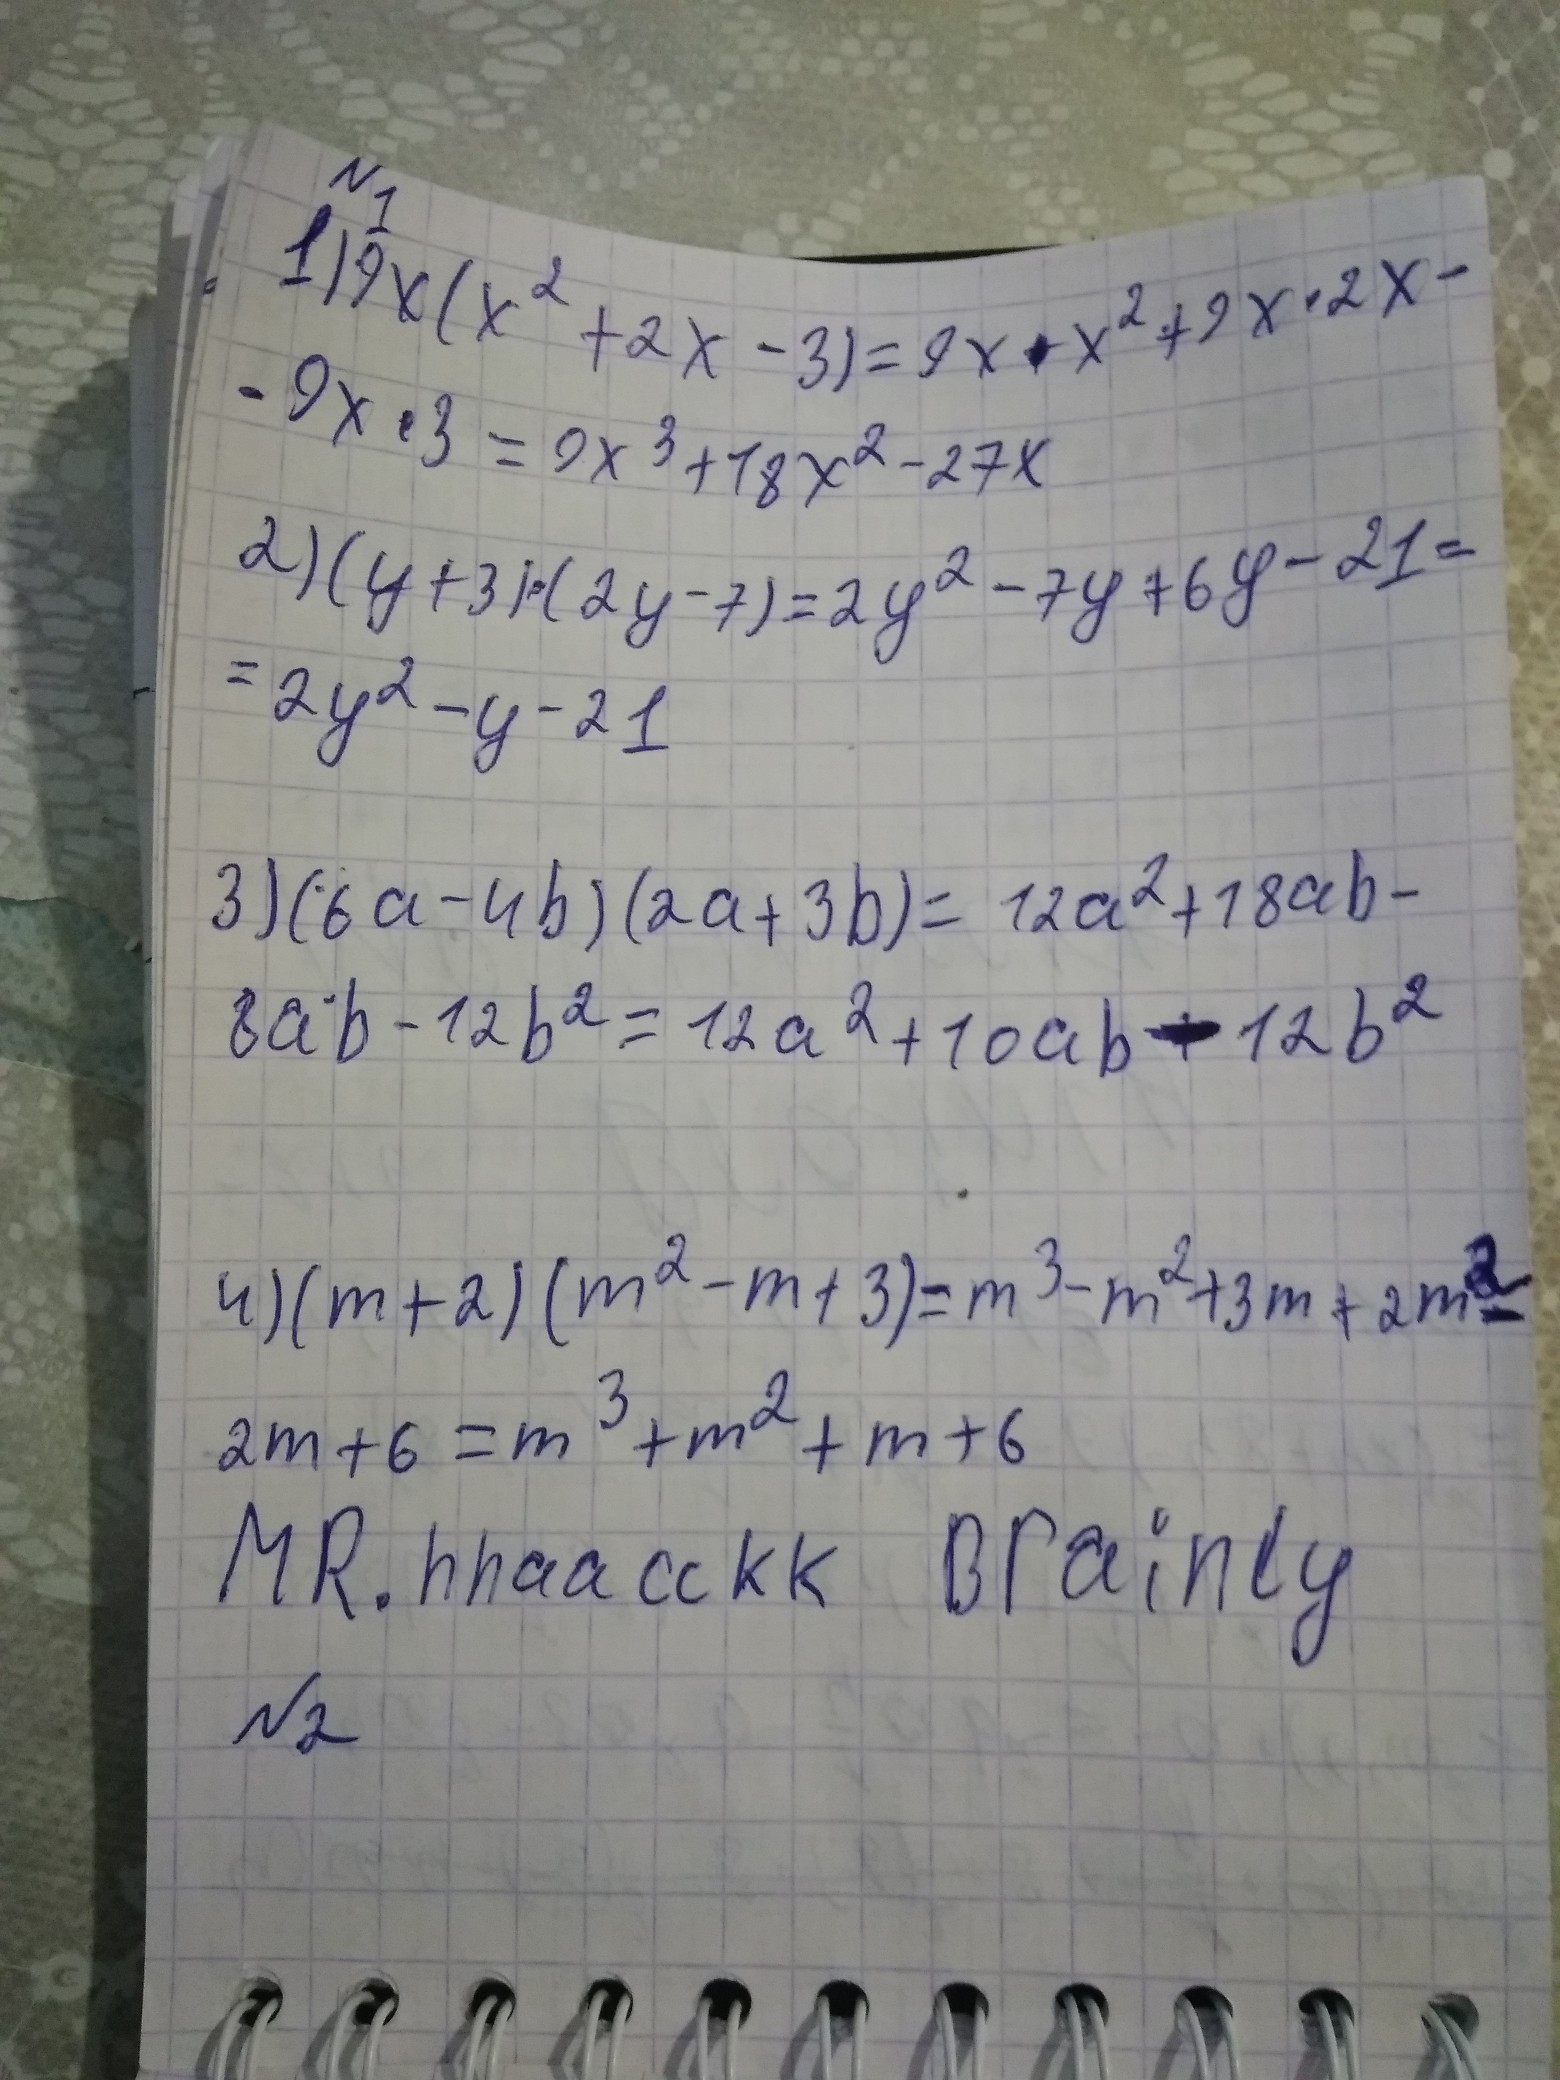 N1
1) 9x(x² + 2x - 3) = 9x · x² + 9x · 2x -
- 9x · 3 = 9x³ + 18x² - 27x
2) (y + 3) · (2y - 7) = 2y² - 7y + 6y - 21 =
= 2y² - y - 21
3) (6a - 4b) (2a + 3b) = 12a² + 18ab -
8ab - 12b² = 12a² + 10ab - 12b²
4) (m + 2) (m² - m + 3) = m³ - m² + 3m + 2m² -
2m + 6 = m³ + m² + m + 6
MR. hhaacckk Brainly
N2